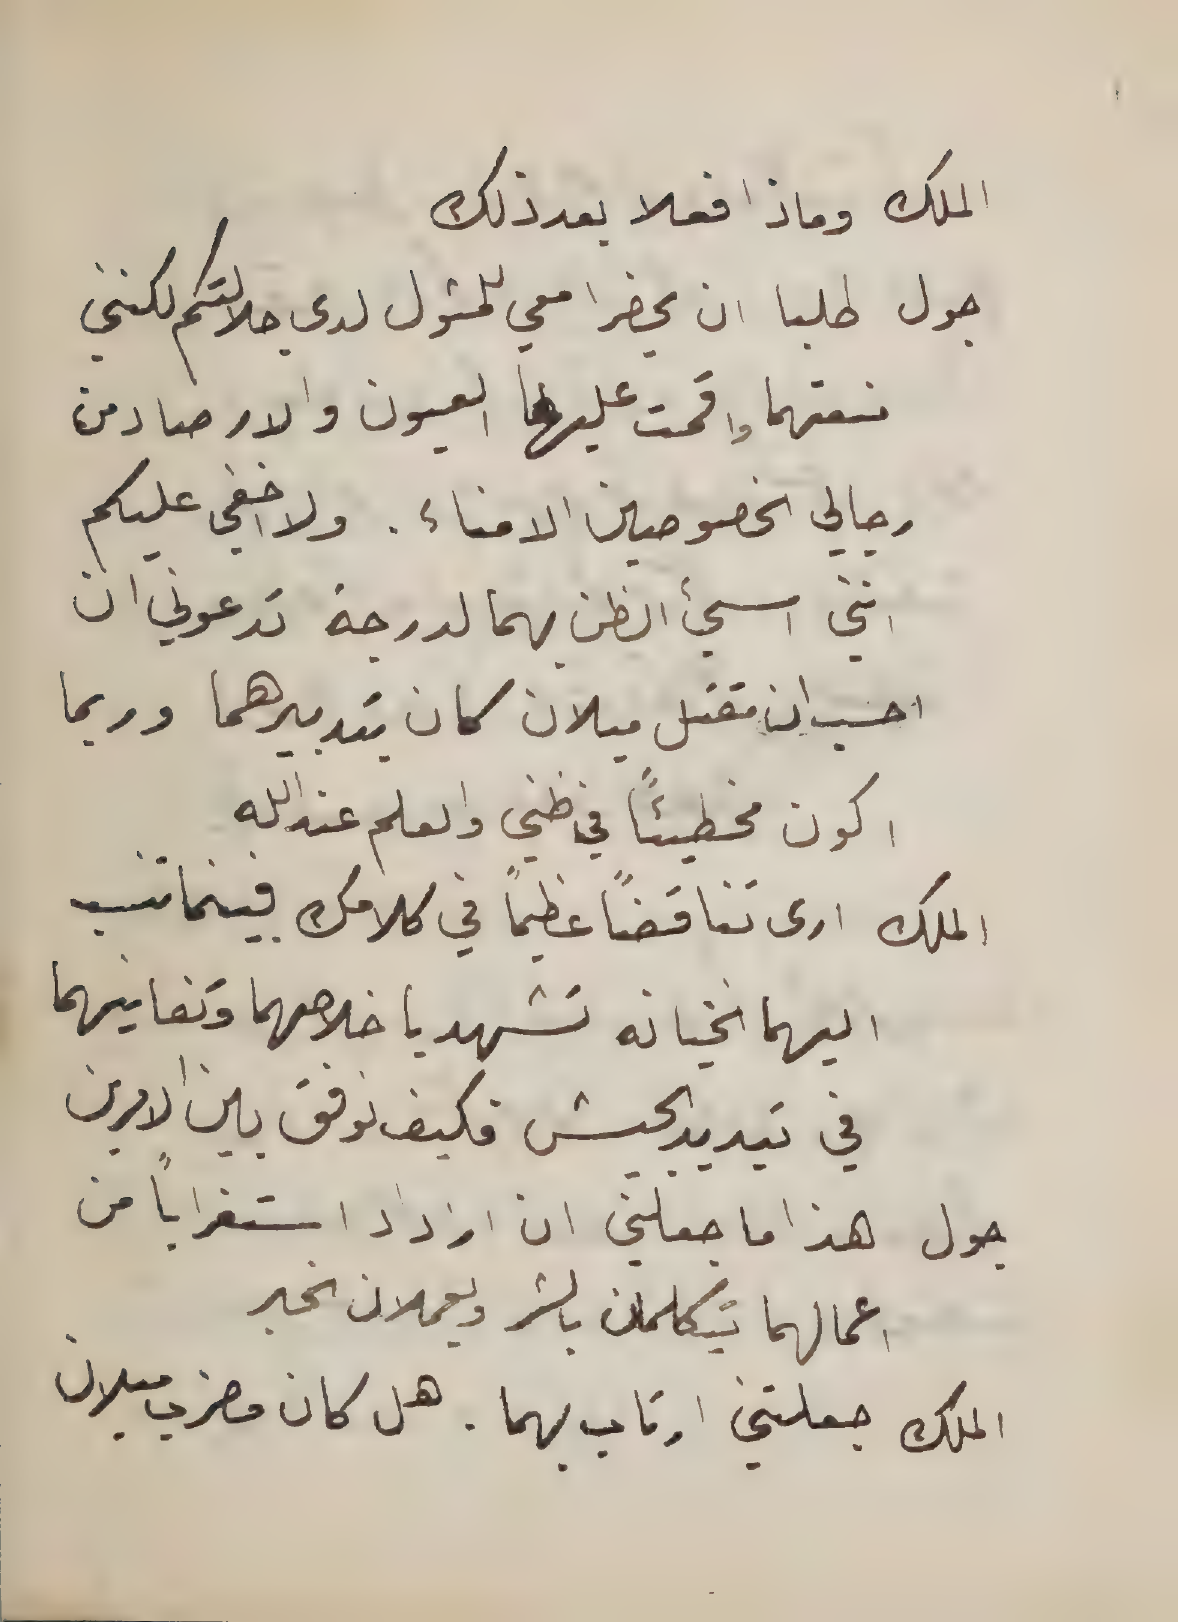 الملك وماذا فعلا بعد ذلك
جول طلبا ان يحضرا معي للمثول لدى جلالتكم لكنني
منعتهما واقمت عليهما العيون والارصاد من
رجالي الخصوصيين الامناء. ولا اخفي عليكم
انني اسيئ الظن بهما لدرجة تدعوني ان
احسب ان مقتل ميلان كان بتدبيرهما وربما
اكون مخطيئاً في ظني والعلم عند الله
الملك ارى تناقضاً عظيماً في كلامك فبينما تنسب
اليهما الخيانه تشهد باخلاصهما وتفانيهما
في تبديد الجيش فكيف نوفق بين الامرين
جول هذا ما جعلني ان ازداد استغراباً من
اعمالهما يتكلمان بالشر ويعملان الخير
الملك جعلتني ارتاب بهما. هل كان مضرب ميلان